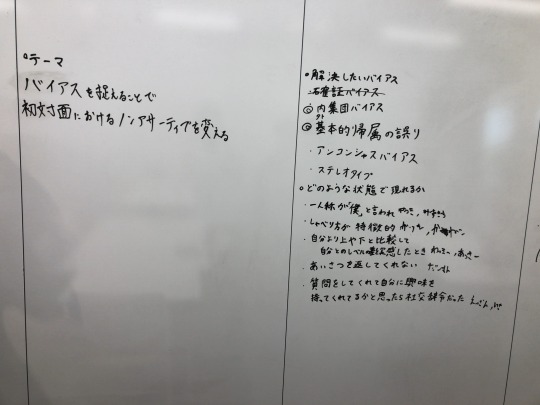 ○テーマ
バイアスを捉えることで
初対面におけるノンアサーティブを変える
○解決したいバイアス
確証バイアス
内集団バイアス
外
基本的帰属の誤り
・アンコンシャスバイアス
・ステレオタイプ
○どのような状態で現れるか
・一人称が「僕」と言われ
・しゃべり方が特徴的
・自分より上や下と比較して
自分とのレベル差を感じたとき
・あいさつを返してくれない
・質問をしてくれて自分に興味を
持ってくれてるかと思ったら社交辞令だった